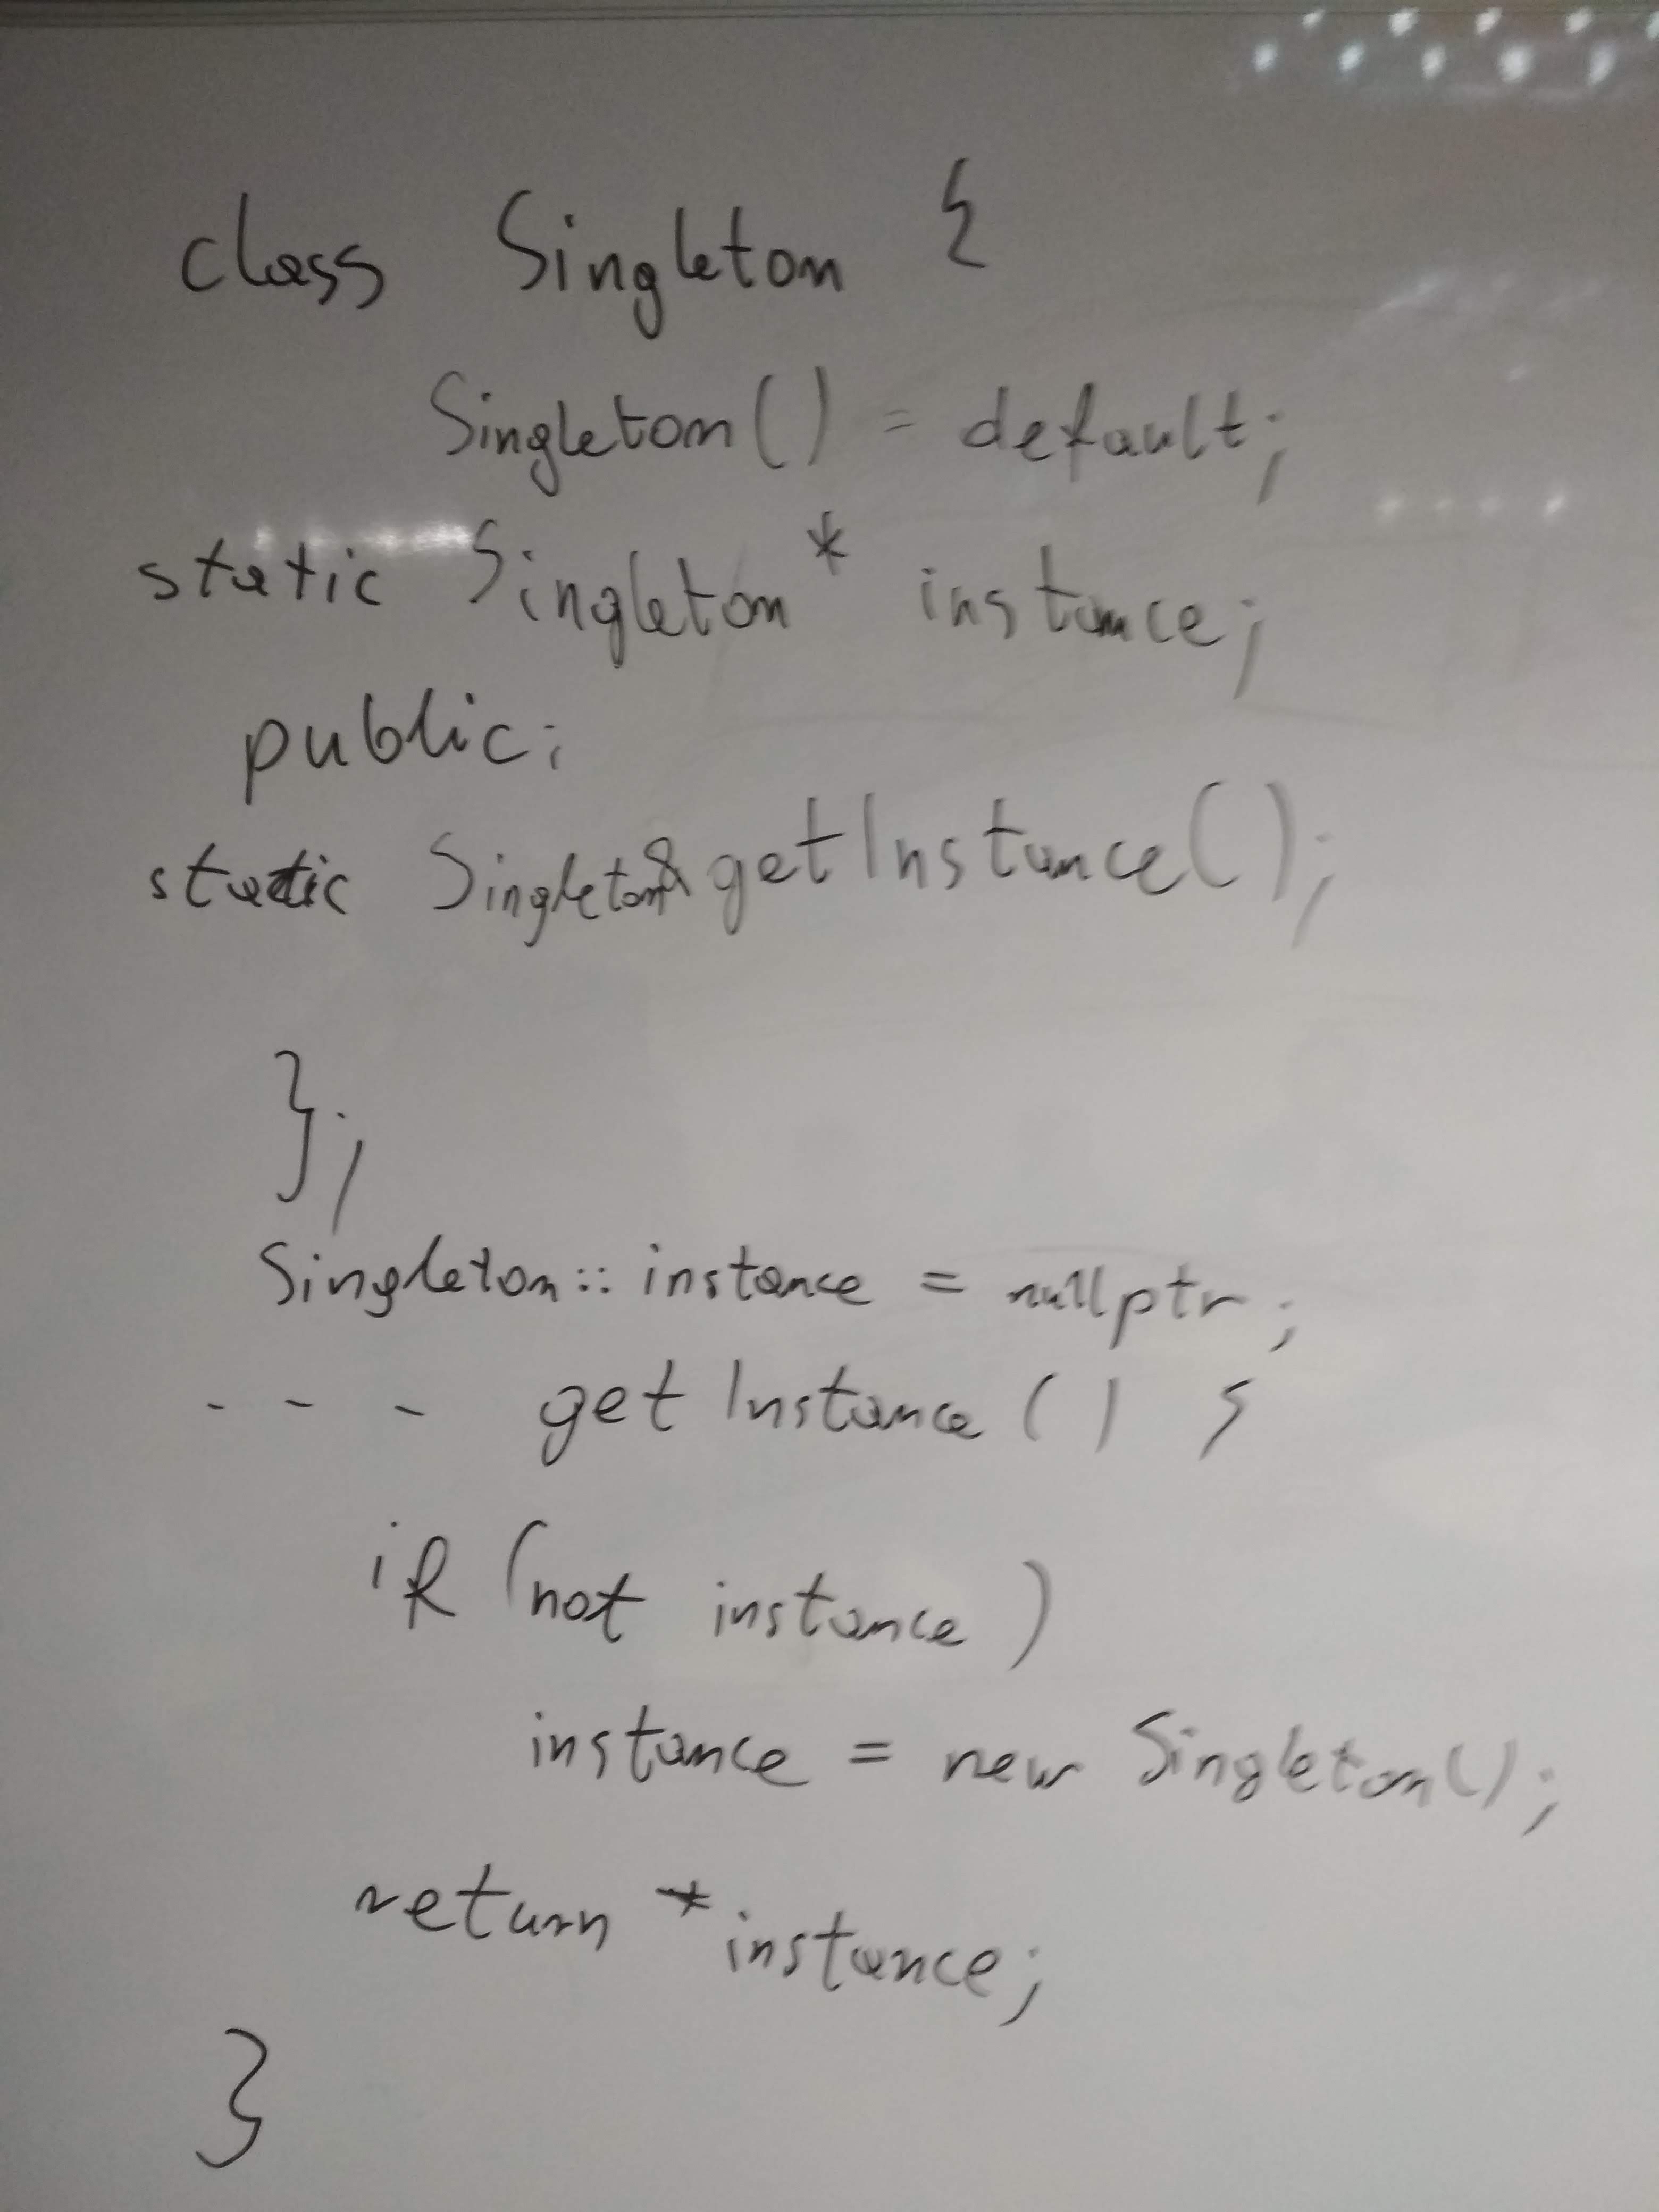 class Singleton {
Singleton() = default;
static Singleton* instance;
public:
static Singleton& getInstance();
};
Singleton::instance = nullptr;
- - - getInstance() {
if (not instance)
instance = new Singleton();
return *instance;
}